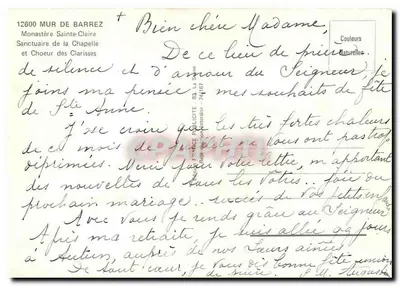 12600 MUR DE BARREZ
Monastère Sainte-Claire
Sanctuaire de la Chapelle
et Choeur des Clarisses
Couleurs
Naturelles
+ Bien chère Madame,
De ce lieu de prière
de silence et d'amour du Seigneur, je
joins ma pensée mes souhaits de fête
de Ste Anne.
J'ose croire que les très fortes chaleurs
de ce mois de ne vous ont pas trop
déprimées. Merci pour votre lettre, m'apportant
des nouvelles de tous les vôtres.. joie du
prochain mariage.. succès de vos petits enfants
Avec vous je rends grâce au Seigneur
Après ma retraite, je suis allée jours
à Autun, auprès de nos Soeurs aînées
De tout coeur, je vous dis bonne fête union
de prière. S. M. Augusta